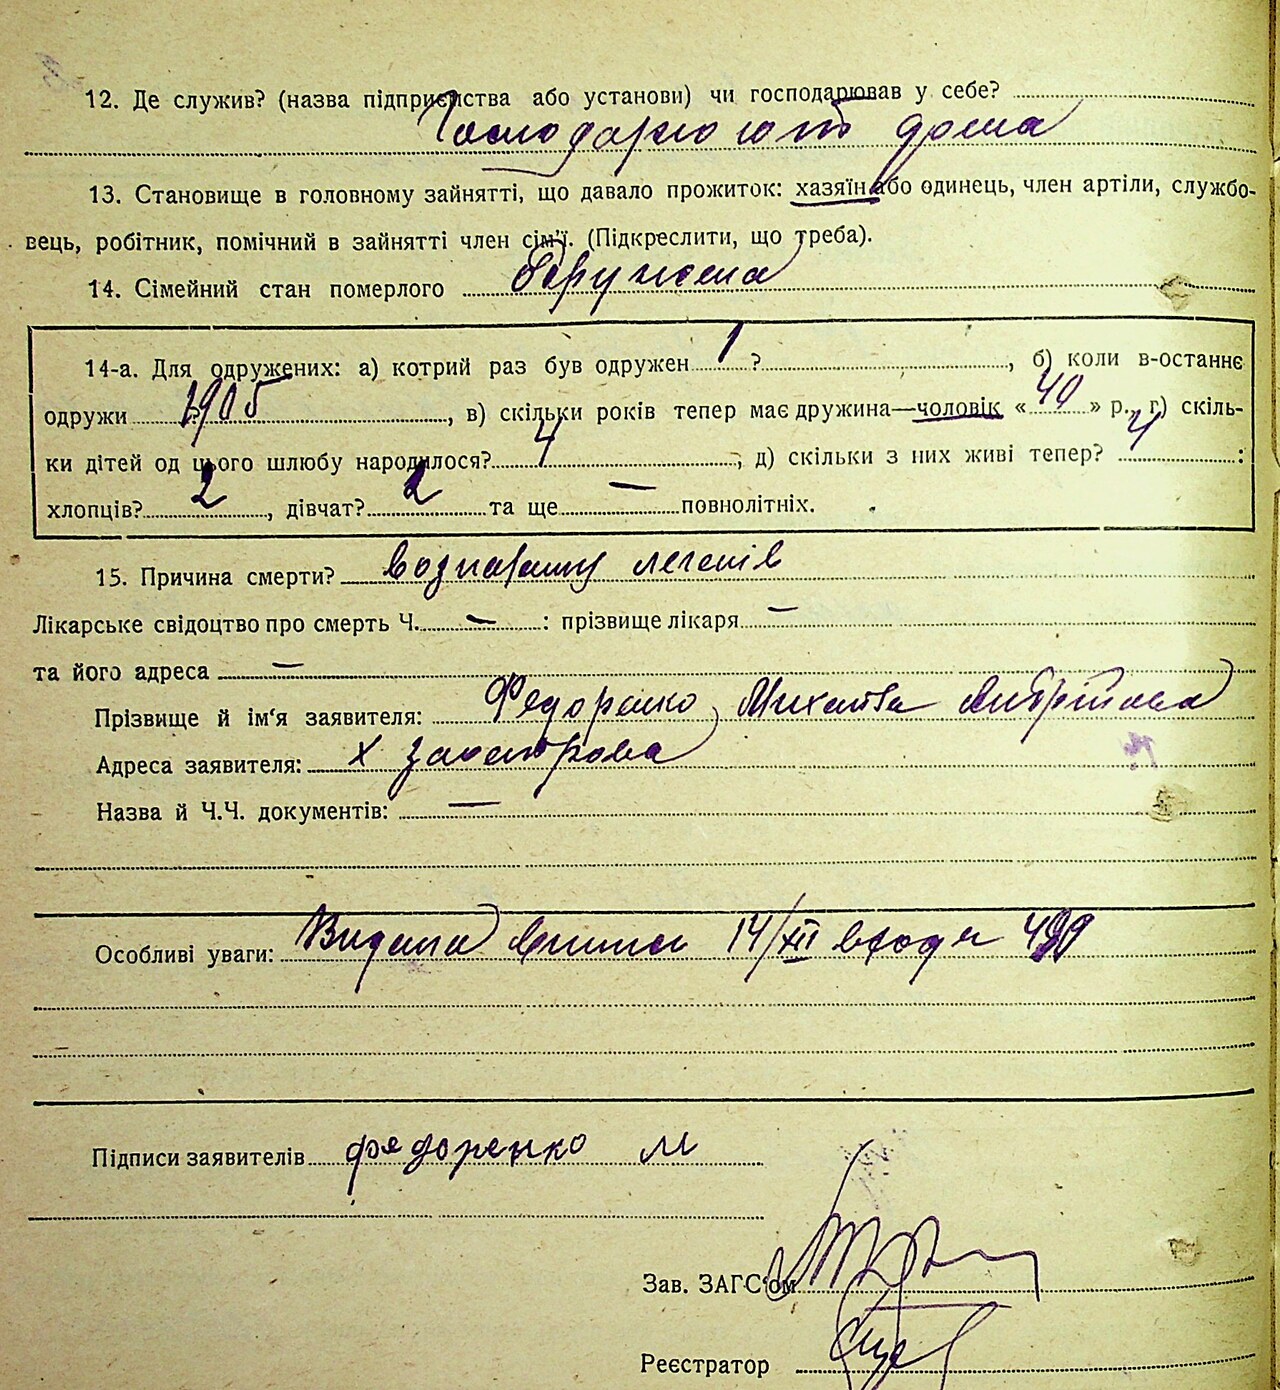 12. Де служив? (назва підприємства або установи) чи господарював у себе?
дома
13. Становище в головному зайнятті, що давало прожиток: хазяїн або одинець, член артіли, службо-
вець, робітник, помічний в зайнятті член сім'ї. (Підкреслити, що треба).
14. Сімейний стан померлого
14-а. Для одружених: а) котрий раз був одружен 1 ?, б) коли в-останнє
одружи 1905, в) скільки років тепер має дружина—чоловік « 40 » р., г) скіль-
ки дітей од цього шлюбу народилося? 4, д) скільки з них живі тепер? 4:
хлопців? 2, дівчат? 2 та ще — повнолітніх.
15. Причина смерти? легенів
Лікарське свідоцтво про смерть Ч. — : прізвище лікаря —
та його адреса —
Прізвище й ім'я заявителя: Федоренко
Адреса заявителя: х
Назва й Ч.Ч. документів: —
Особливі уваги: 14/XII
Підписи заявителів Федоренко М
Зав. ЗАГС'ом
Реєстратор